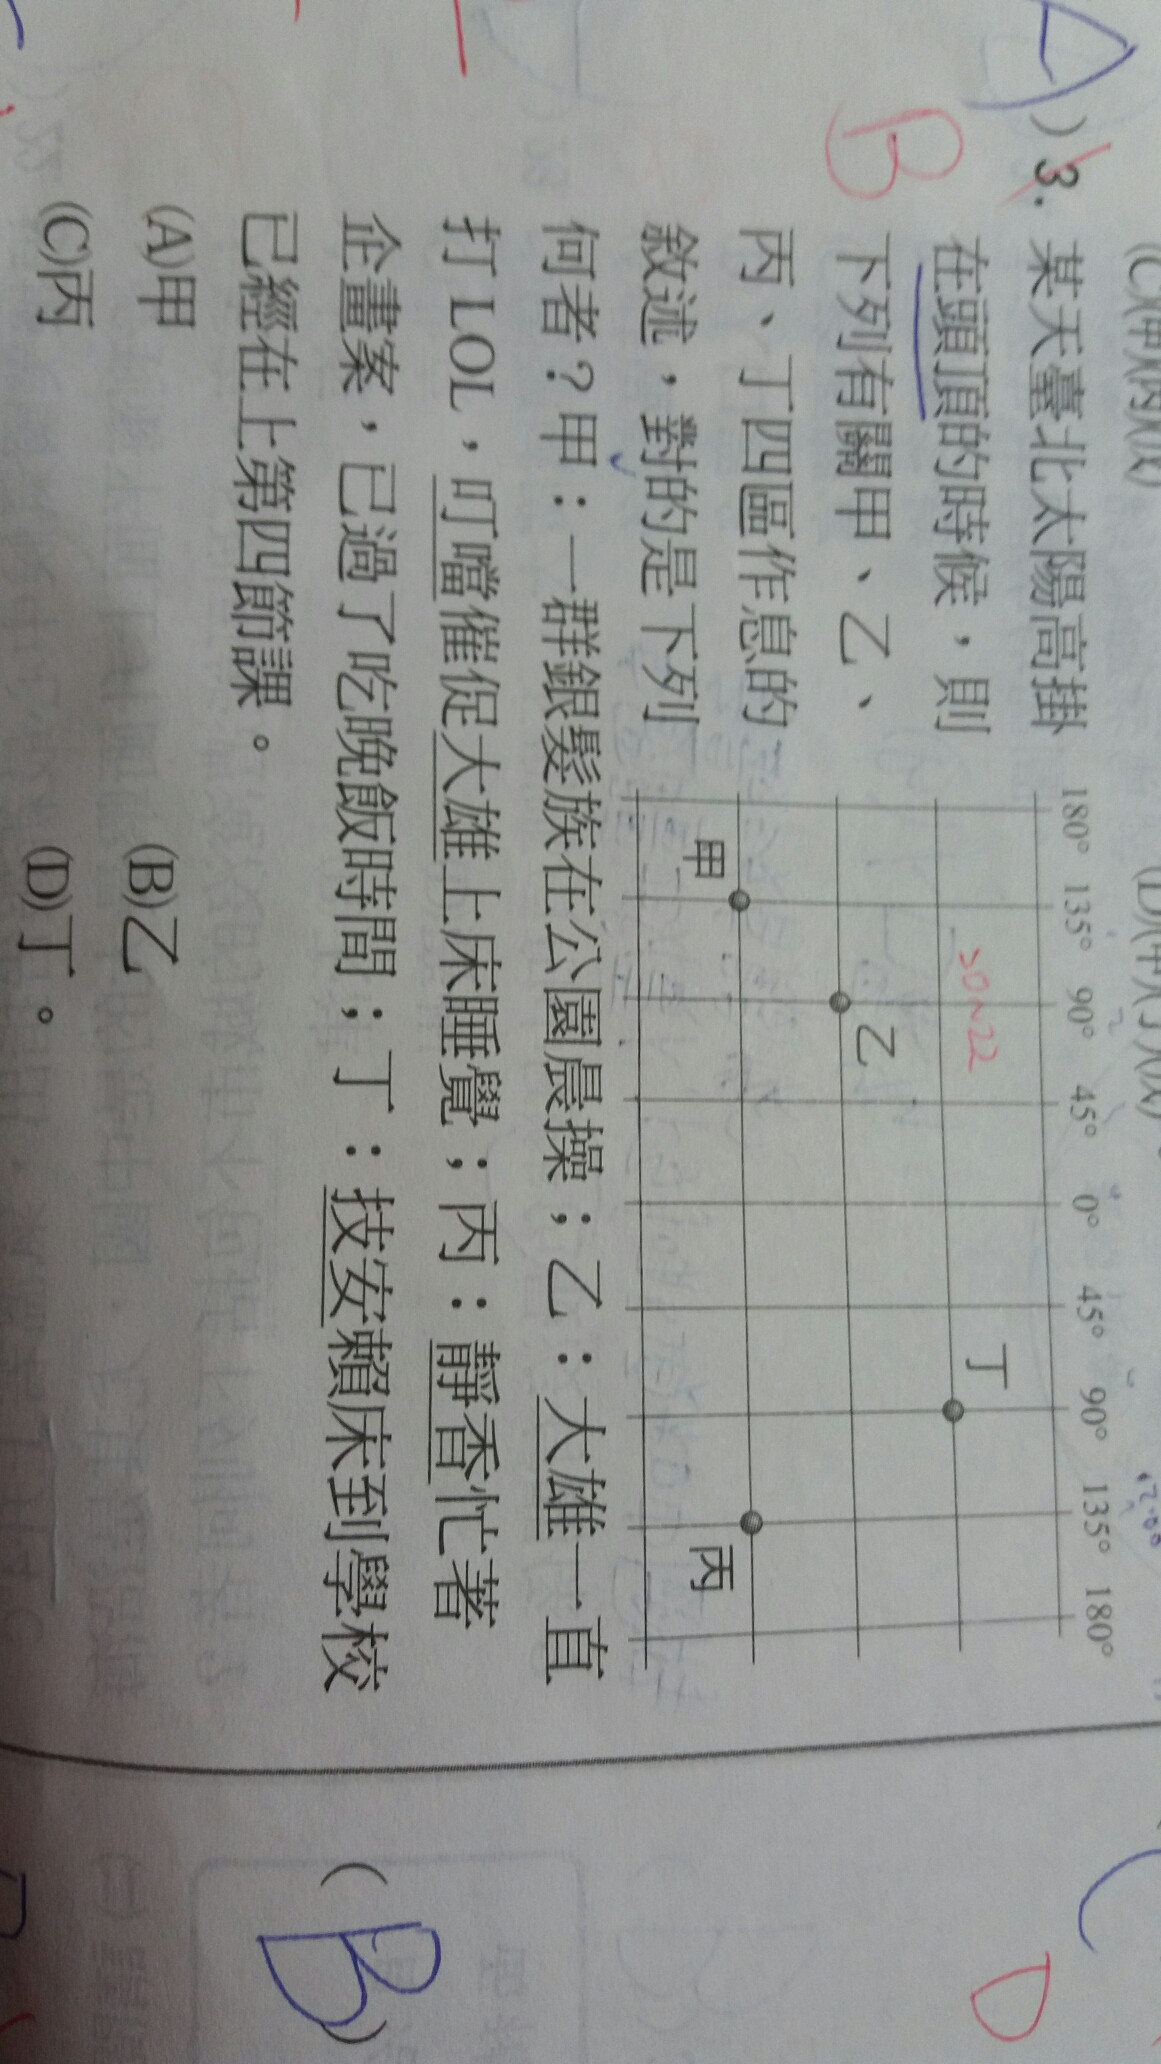 (C)(甲)(丙)(戊)
(D)(甲)(丁)(戊)
A
) 3. 某天臺北太陽高掛
B
在頭頂的時候，則
下列有關甲、乙、
丙、丁四區作息的
敘述，對的是下列
180° 135° 90° 45° 0° 45° 90° 135° 180°
12:00
20~22
丁
乙
甲
丙
何者？甲：一群銀髮族在公園晨操；乙：大雄一直
打 LOL，叮噹催促大雄上床睡覺；丙：靜香忙著
企畫案，已過了吃晚飯時間；丁：技安賴床到學校
已經在上第四節課。
(A)甲
(B)乙
(C)丙
(D)丁。
D
( B )